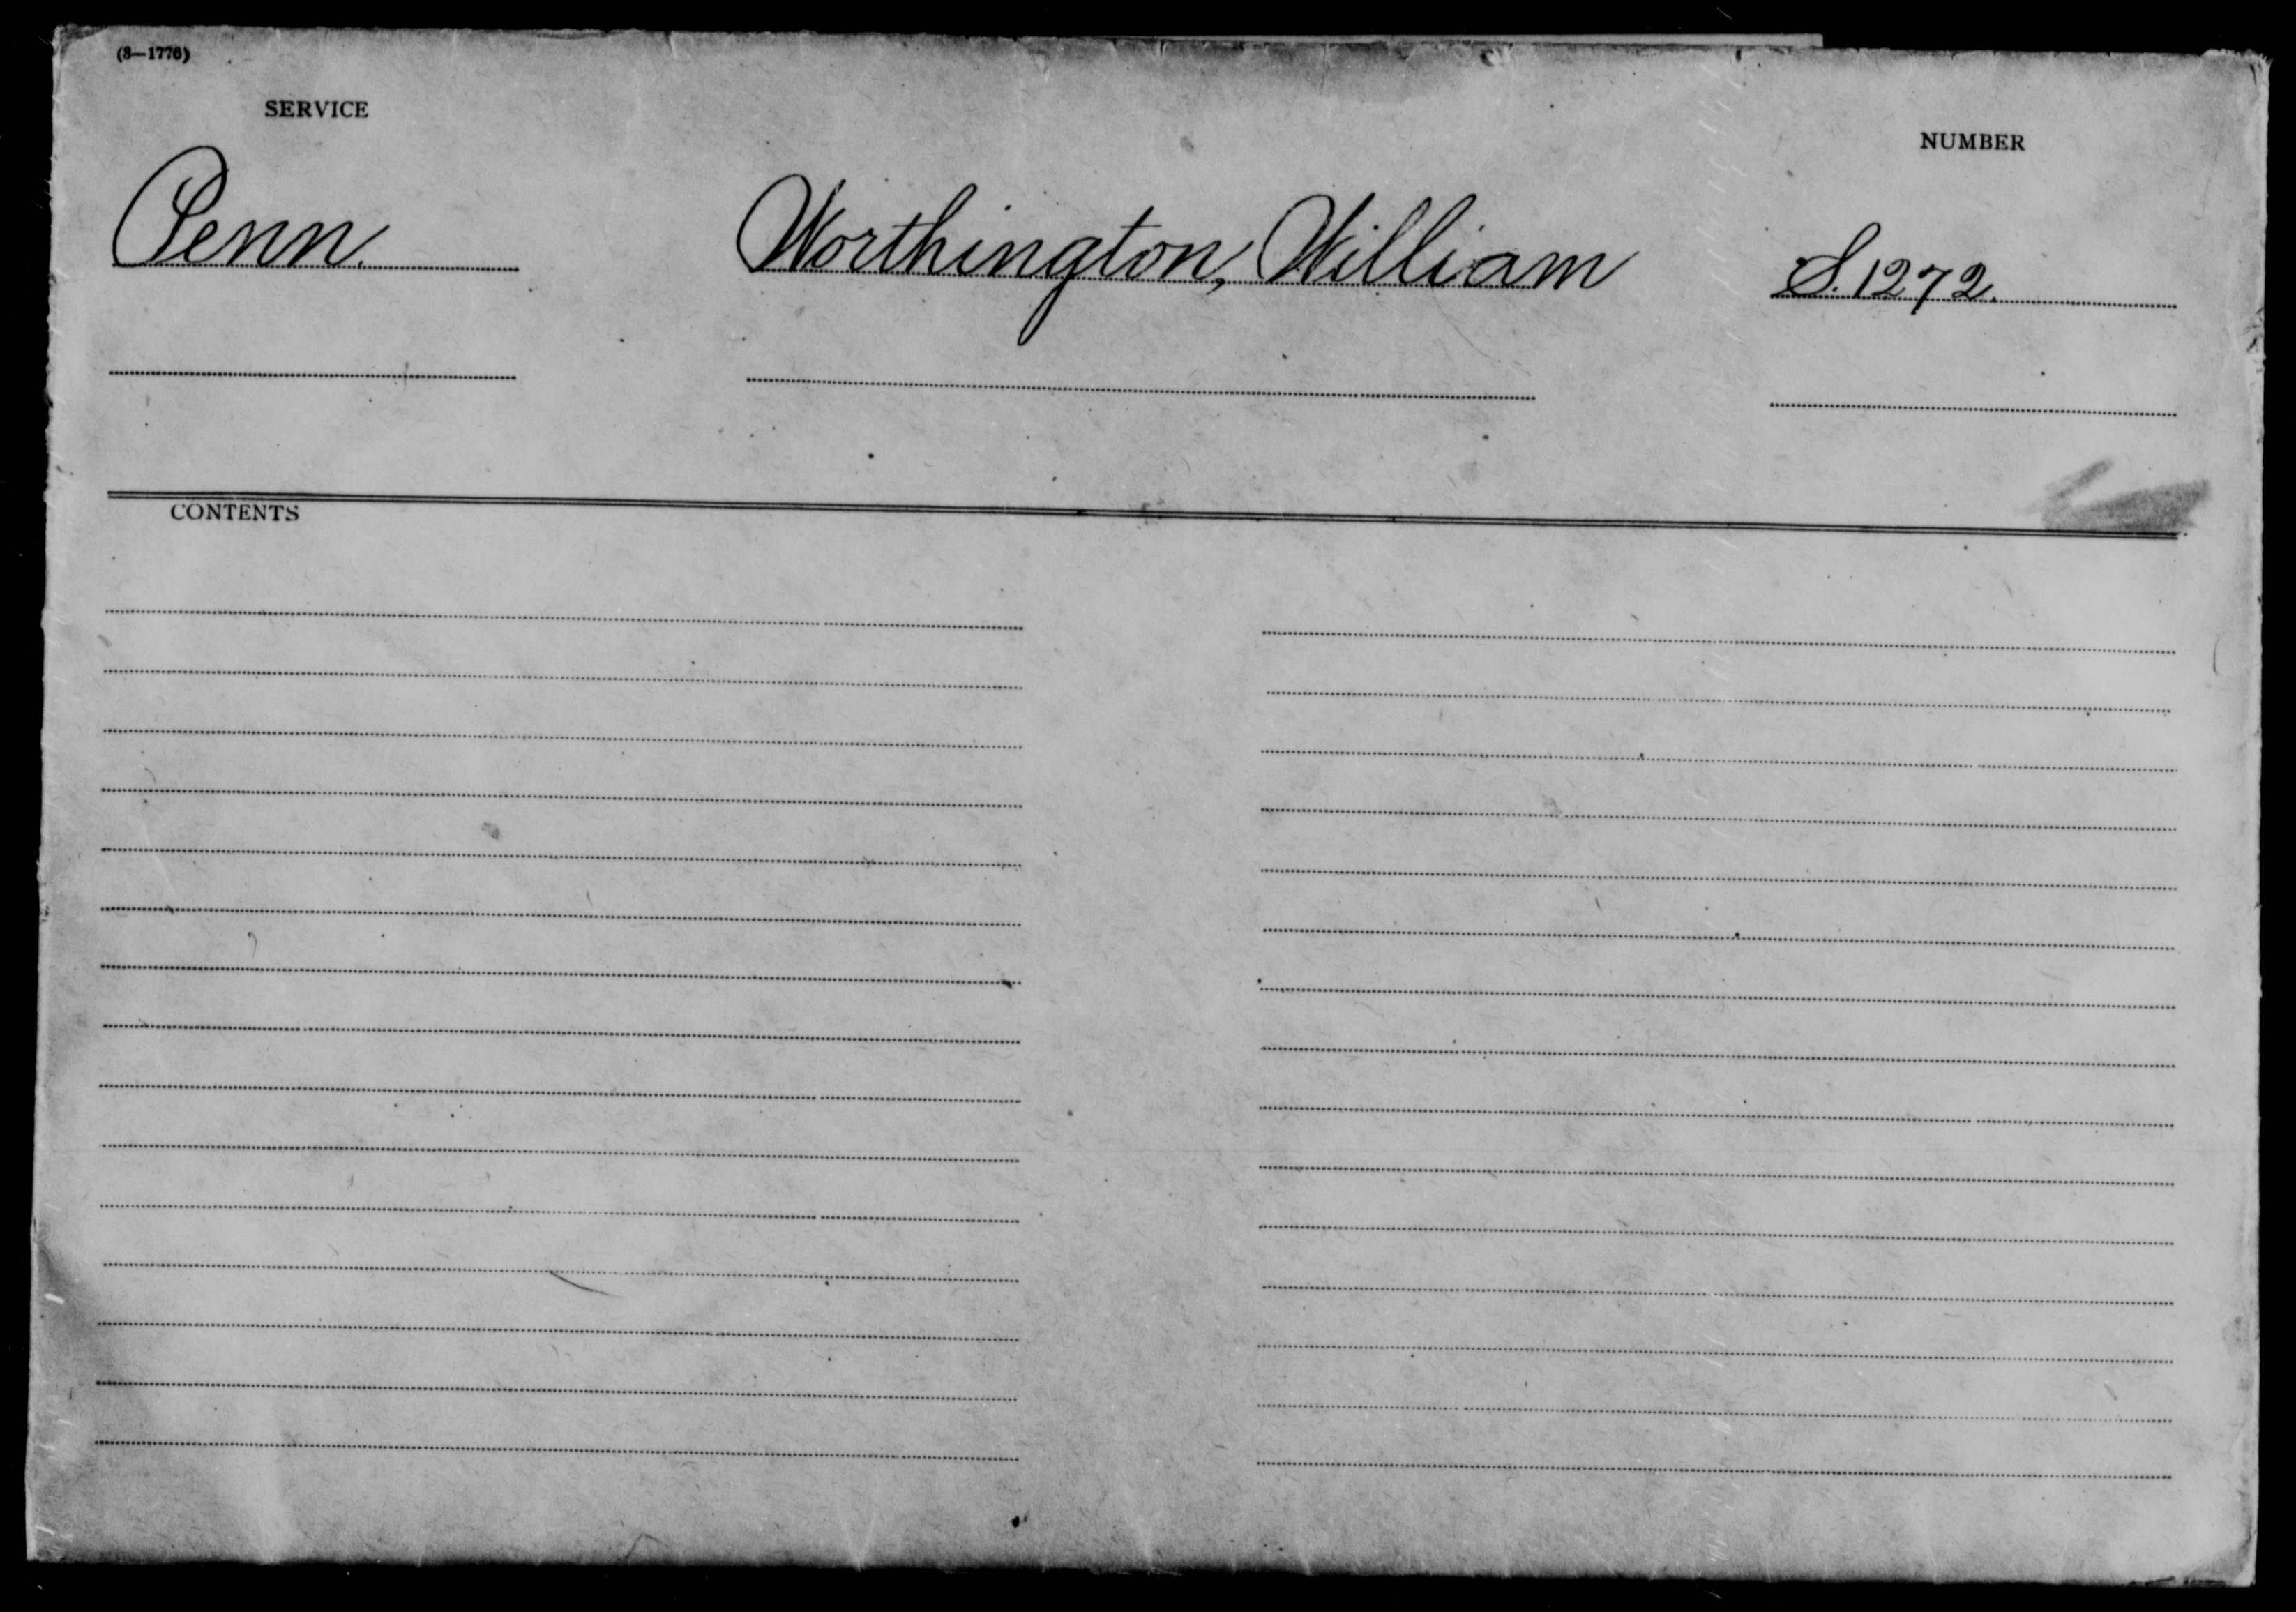 (3—1776)
SERVICE
NUMBER
Penn.
Worthington, William
S. 1272.
CONTENTS